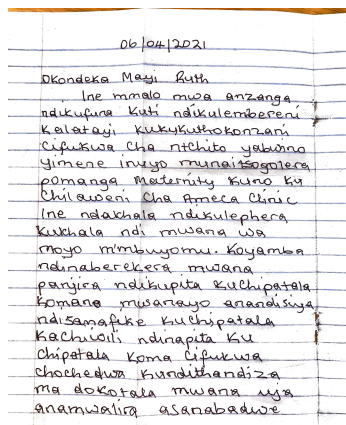 06/04/2021
Okondeka Mayi Ruth
Ine mmalo mwa anzanga
ndikufuna kuti ndikulembereni
kalatayi kukykuthokonzani
Cifukwa cha ntchito yabwino
yimene inuyo munaitsogolera
pomanga Maternity kuno ku
Chilaweni Cha Ameca Clinic
Ine ndakhala ndikulephera
kukhala ndi mwana wa
moyo m'mbuyomu. Koyamba
ndinaberekera mwana
panjira ndikupita kuchipatala
komano mwanayo anandisiya
ndisanafike kuchipatala
kachiwili ndinapita ku
chipatala koma Cifukwa
chochedwa kundithandiza
ma dokotala mwana uja
anamwalira asanabadwe